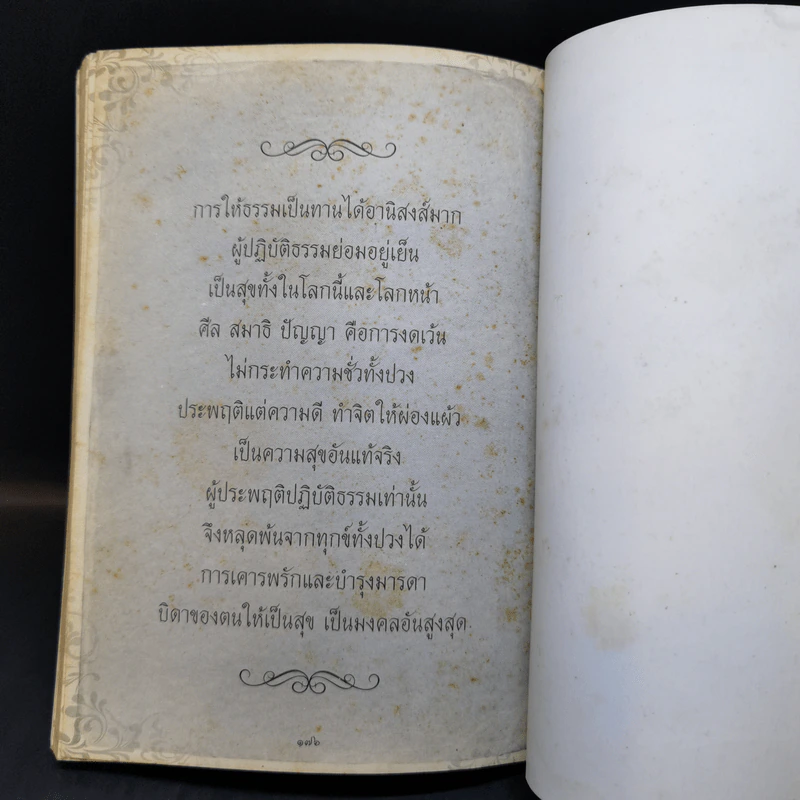 การให้ธรรมเป็นทานได้อานิสงส์มาก
ผู้ปฏิบัติธรรมย่อมอยู่เย็น
เป็นสุขทั้งในโลกนี้และโลกหน้า
ศีล สมาธิ ปัญญา คือการงดเว้น
ไม่กระทำความชั่วทั้งปวง
ประพฤติแต่ความดี ทำจิตให้ผ่องแผ้ว
เป็นความสุขอันแท้จริง
ผู้ประพฤติปฏิบัติธรรมเท่านั้น
จึงหลุดพ้นจากทุกข์ทั้งปวงได้
การเคารพรักและบำรุงมารดา
บิดาของตนให้เป็นสุข เป็นมงคลอันสูงสุด
๑๗๖